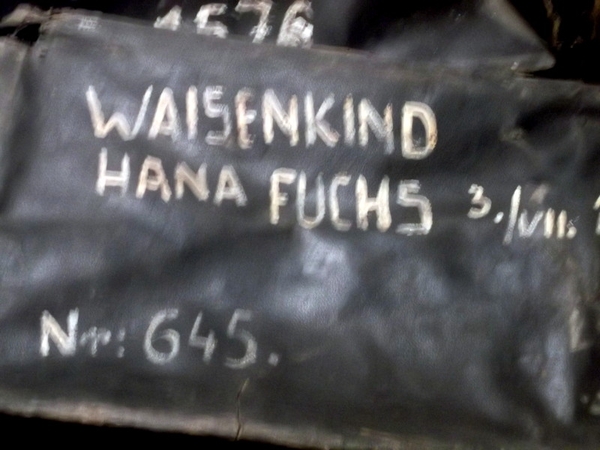 1576
WAISENKIND
HANA FUCHS 3./VII.
Nr: 645.